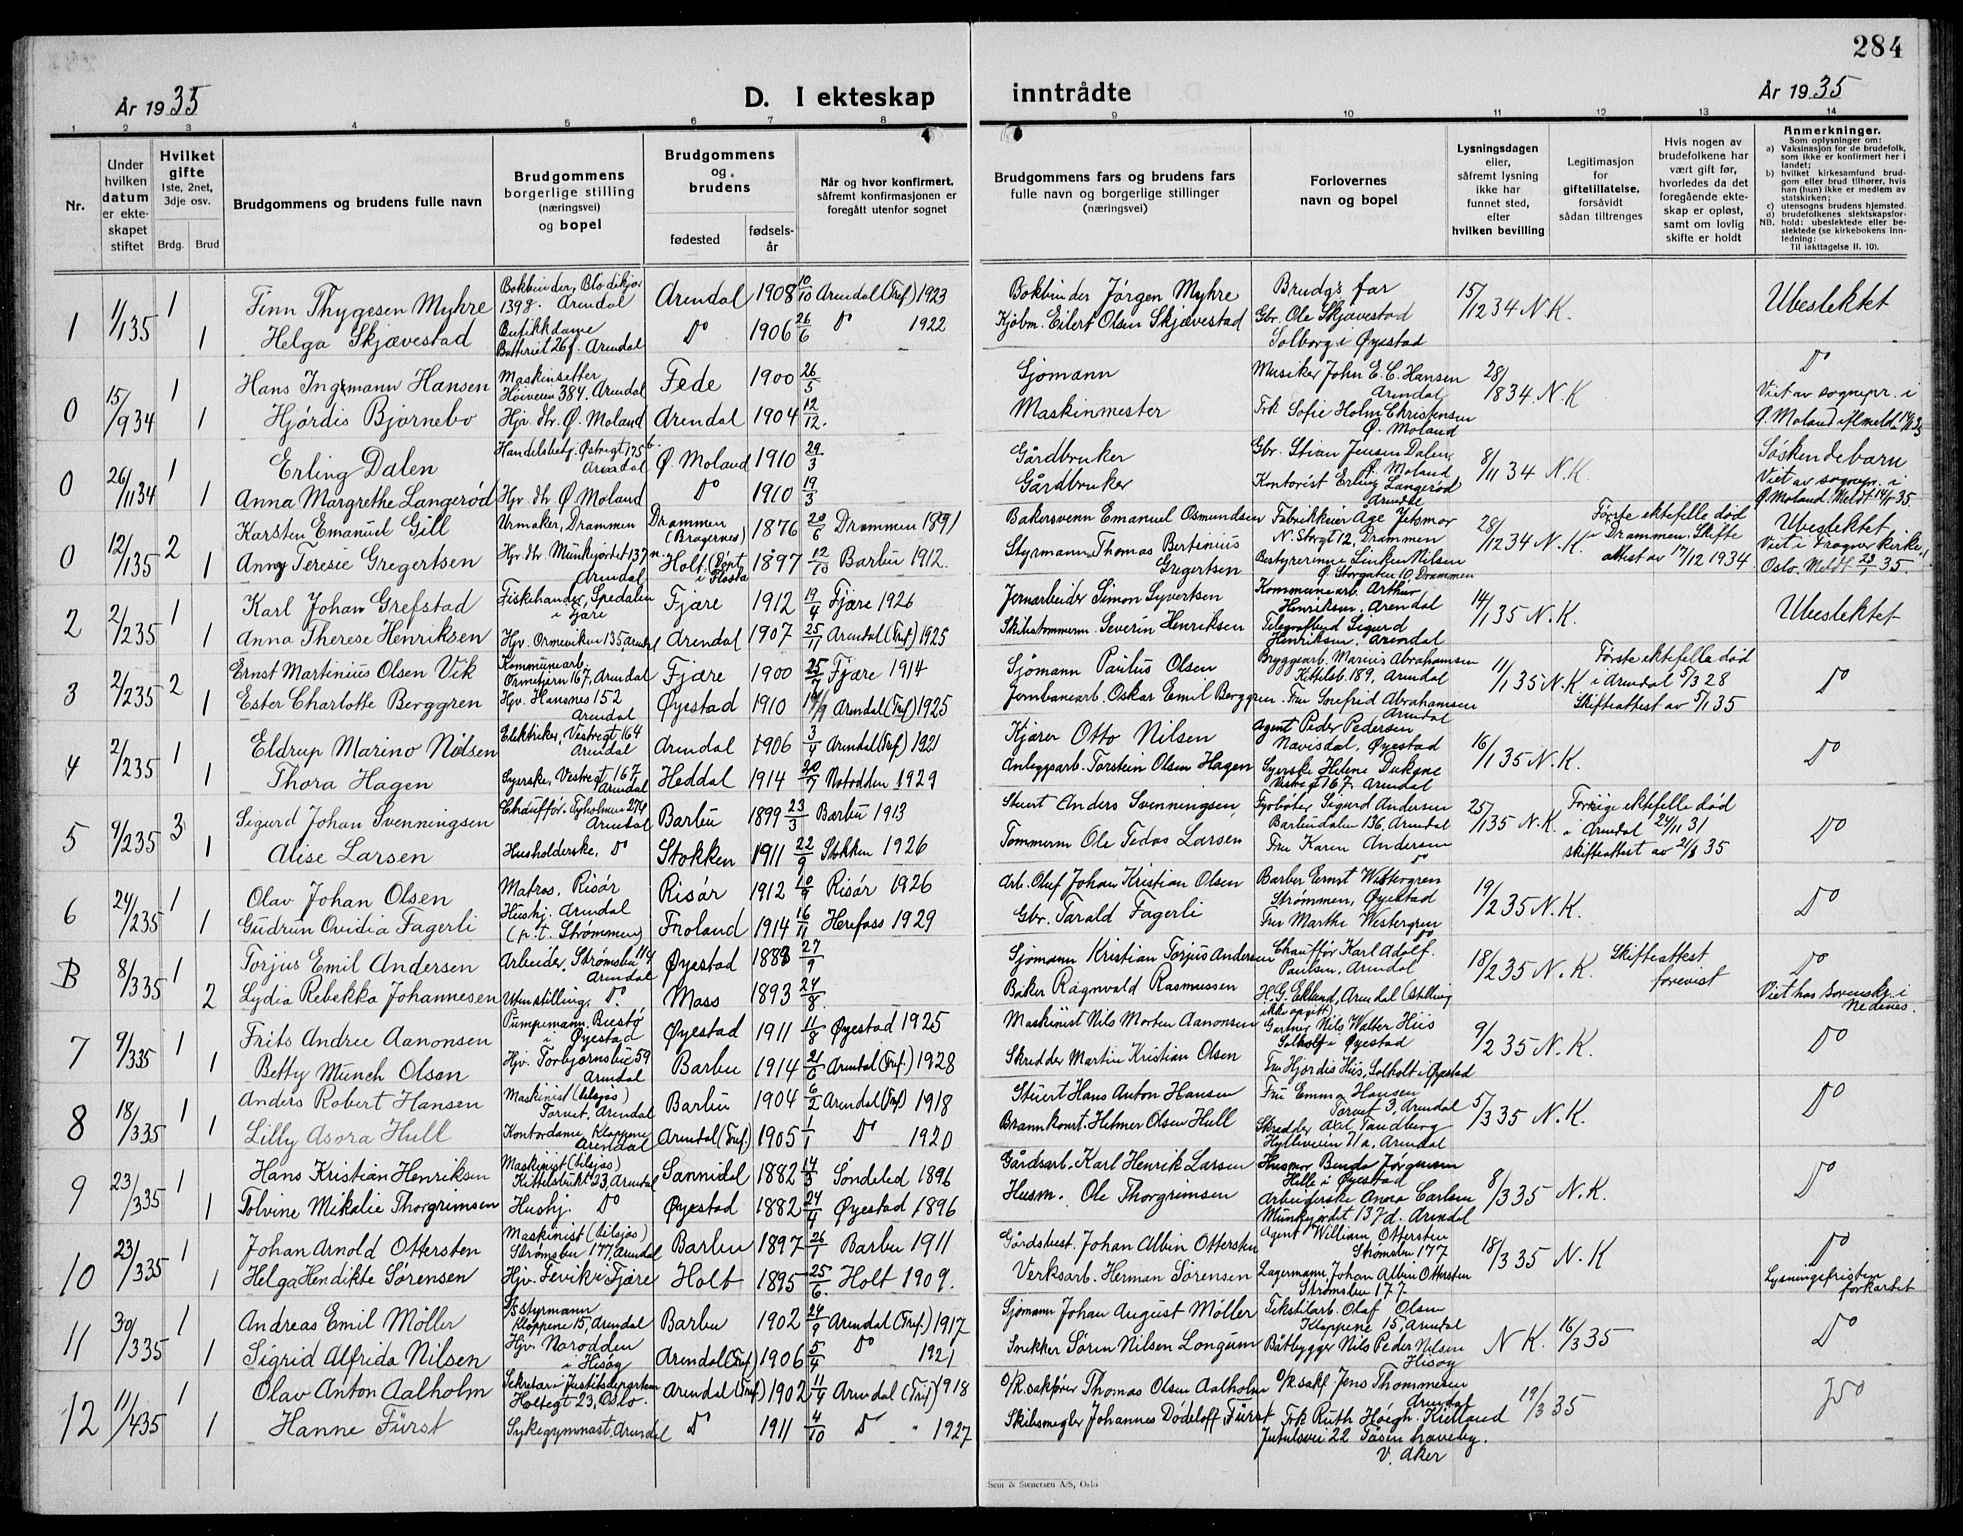 284
År 1935
D. I ekteskap inntrådte
År 1935
1 2 3 4 5 6 7 8 9 10 11 12 13 14
Nr.
Under hvilken datum er ekteskapet stiftet
Hvilket gifte 1ste, 2net, 3dje osv.
Brdg. Brud
Brudgommens og brudens fulle navn
Brudgommens borgerlige stilling (næringsvei) og bopel
Brudgommens og brudens
fødested
fødselsår
Når og hvor konfirmert, såfremt konfirmasjonen er foregått utenfor sognet
Brudgommens fars og brudens fars fulle navn og borgerlige stillinger (næringsvei)
Forlovernes navn og bopel
Lysningsdagen eller, såfremt lysning ikke har funnet sted, efter hvilken bevilling
Legitimasjon for giftetillatelse, forsåvidt sådan tiltrenges
Hvis nogen av brudefolkene har vært gift før, hvorledes da det foregående ekteskap er opløst, samt om lovlig skifte er holdt
Anmerkninger.
Som oplysninger om:
a) Vaksinasjon for de brudefolk, som ikke er konfirmert her i landet;
b) hvilket kirkesamfund brudgom eller brud tilhører, hvis han (hun) ikke er medlem av statskirken;
c) utensogns brudens hjemsted.
d) brudefolkenes slektskapsforhold: ubeslektede eller beslektede (se kirkebokens innledning:
NB.
Til iakttagelse II. 10).
1 1/1 35 1 Finn Thygesen Myhre Bokbinder, Blødekjær 139 g. Arendal Arendal 1908 10/10 Arendal (Tref) 1923 Bokbinder Jørgen Myhre Brudgs far 15/12 34 N.K. Ubeslektet
1 Helga Skjævestad Butikkdame Batteriet 26 f. Arendal Do 1906 26/6 Do 1922 Kjølm. Eilert Olsen Skjævestad Gbr. Ole Skjævestad Solborg i Øyestad
0 15/9 34 1 Hans Ingemann Hansen Maskinsetter Høiveien 384. Arendal Fede 1900 26/5 Sjømann Musiker John E. C. Hansen Arendal 28/8 34. N.K Do
1 Hjørdis Bjørnebo Hjv. dtr. Ø. Moland Arendal 1904 12/12. Maskinmester Frk Sofie Holm Christensen Ø. Moland Viet av sognepr. i Ø. Moland
0 26/11 34 1 Erling Dalen Handelsbetj. Østregt 175 b. Arendal Ø. Moland 1910 29/3 Gårdbruker Gbr. Stian Jensen Dalen, Ø. Moland 8/11 34 N.K. Søskendebarn
1 Anna Margrethe Langerød Hjv. dtr Ø. Moland Do 1910 19/3 Gårdbruker Kontorist Erling Langerød Arendal Viet av sognepr. i Ø. Moland. Meldt 14/1 35.
0 12/1 35 2 Karsten Emanuel Gill Urmaker, Drammen Drammen (Bragernes) 1876 20/6 Drammen 1891 Bakersvenn Emanuel Osmundsen Fabrikkeier Åge Jetsmor N. Storgt 12, Drammen 28/12 34 N.K. Første ektefelle død i Drammen. Skifteattest av 17/12 1934 Ubeslektet
1 Anny Teresie Gregertsen Hjv. dtr. Munkejordet 137 n. Arendal Holt (Dypt i Flosta 1897 12/10 Barbu 1912. Styrmann Thomas Bertinius Gregertsen Bestyrerinne Linken Nilsen Ø. Storgaten 10 Drammen Viet i Frogner kirke, Oslo. Meldt 23/1 35.
2 2/2 35 1 Karl Johan Grefstad Fiskehandler, Spedalen i Fjære Fjære 1912 19/4 Fjære 1926 Jernarbeider Simon Syvertsen Kommunearb. Arthur Henriksen, Arendal 14/1 35 N.K. Ubeslektet
1 Anna Therese Henriksen Hjv. Ormeviken 135, Arendal Arendal 1907 25/11 Arendal (Tref) 1925 Skibstømmerm. Severin Henriksen Telegrafbud Sigurd Henriksen, Arendal
3 2/2 35 2 Ernst Martinius Olsen Vik Kommunearb. Ormetjern 167, Arendal Fjære 1900 25/7 Fjære 1914 Sjømann Paulus Olsen Bryggearb. Marius Abrahamsen Kittelsb. 189, Arendal 11/1 35 N.K. Første ektefelle død i Arendal 5/3 28 Do
1 Ester Charlotte Berggren Hjv. Hansnes 152 Arendal Øyestad 1910 14/9 Arendal (Tref) 1925 Jernbanearb. Oskar Emil Berggren Fru Snefrid Abrahamsen Arendal Skifteattest av 5/1 35
4 2/2 35 1 Eldrup Marino Nilsen Elektriker, Vestregt 164 Arendal Arendal 1906 3/4 Arendal (Tref) 1921 Kjører Otto Nilsen Agent Peder Pedersen Navisdal, Øyestad 16/1 35 N.K. Do
1 Thora Hagen Syerske, Vestregt 167 Arendal Heddal 1914 20/7 Notodden 1929 Anleggsarb. Torstein Olsen Hagen Syerske Helene Dukane Arendal
5 9/2 35 3 Sigurd Johan Svenningsen Chauffør, Tyholmen 274 Arendal Barbu 1899 23/3 Barbu 1913 Stuert Anders Svenningsen Fyrbøter Sigurd Andersen Barbudalen 136, Arendal 25/1 35 N.K. Forrige ektefelle død i Arendal 24/11 31 Do
1 Alise Larsen Husholderske, Do Stokken 1911 22/9 Stokken 1926 Tømmerm Ole Tedas Larsen Fru Karen Andersen Do skifteattest av 35
6 24/2 35 1 Olav Johan Olsen Matros, Risør Risør 1912 10/9 Risør 1926 Arb. Oluf Johan Kristian Olsen Barber Ernst Westergren Strømmen, Øyestad 19/2 35 N.K. Do
1 Gudrun Ovidia Fagerli Hushj. Arendal (p.t. Strømmen) Froland 1914 16/11 Herefoss 1929 Gbr. Tarald Fagerli Fru Marthe Westergren Do
B 8/3 35 1 Torjus Emil Andersen Arbeider, Strømsbu 114 Arendal Øyestad 1888 27/9 Sjømann Kristian Torjus Andersen Chauffør Karl Adolf Paulsen, Arendal 18/2 35 N.K. Skifteattest forevist Do
2 Lydia Rebekka Johannesen Uten stilling, Do. Moss 1893 24/8. Baker Ragnvald Rasmussen H. G. Eklund, Arendal (stilling ikke opgitt) Viet hos sorenskr. i Nedenes.
7 9/3 35 1 Frits Andree Aanonsen Pumpemann, Biestø i Øyestad Øyestad 1911 11/8 Øyestad 1925 Maskinist Nils Morten Aanonsen Gartner Nils Walter Hiis Solholt i Øyestad 9/2 35 N.K. Do
1 Betty Münch Olsen Hjv. Torbjørnsbu 59 Arendal Barbu 1914 21/6 Arendal (Tref.) 1928 Skredder Martin Kristian Olsen Fru Hjørdis Hiis, Solholt i Øyestad
8 18/3 35 1 Anders Robert Hansen Maskinist (tilsjøs) Torvet, Arendal Barbu 1904 6/2 Arendal (Tref) 1918 Stuert Hans Anton Hansen Fru Emma Hansen Torvet 3, Arendal 5/3 35 N.K. Do
1 Lilly Asora Hull Kontordame, Kloppene Arendal Arendal (Tref.) 1905 1/1 Do 1920 Brannkonst. Helmer Olsen Hull Skredder Axel Tandberg Hylleveien 71a, Arendal
9 23/3 35 1 Hans Kristian Henriksen Maskinist (tilsjøs) Kittelsbukt 23, Arendal Sannidal 1882 14/3 Søndeled 1896 Gårdsarb. Karl Henrik Larsen Husmor Benda Jørgensen Helle i Øyestad 8/3 35 N.K. Do
1 Tolvine Mikalie Thorgrimsen Hushj. Do Øyestad 1882 24/4 Øyestad 1896 Husm. Ole Thorgrimsen Arbeiderske Anna Carlsen Munkejordet 137 d. Arendal
10 23/3 35 1 Johan Arnold Ottersten Maskinist (tilsjøs) Strømsbu 177, Arendal Barbu 1897 26/1 Barbu 1911 Gårdsbest. Johan Albin Ottersten Agent William Ottersten Strømsbu 177 18/3 35 N.K Do
1 Helga Hendikte Sørensen Hjv. Fevik i Fjære Holt 1895 25/6. Holt 1909. Verksarb. Herman Sørensen Lagermann, Johan Albin Ottersten Strømsbu 177. Lysningsfristen forkortet
11 30/3 35 1 Andreas Emil Möller styrmann Kloppene 15, Arendal Barbu 1902 24/9 Arendal (Tref.) 1917 Sjømann Johan August Möller Tekstilarb. Olaf Olsen Kloppene 15, Arendal N K. 16/3 35 Do
1 Sigrid Alfrida Nilsen Hjv. Narodden i Hisøy Arendal (Tref) 1906 5/4 Do 1921 Snekker Søren Nilsen Longum Båtbygger Nils Peder Nilsen Hisøy
12 11/4 35 1 Olav Anton Aalholm Sekretær i Justitsdepartem Holtegt 23, Oslo. Arendal (Tref) 1902 11/4 Arendal (Tref) 1918 O/R. sakfører Thomas Olsen Aalholm O/R. sakf. Jens Thommesen Arendal 19/3 35 Do
1 Hanne Fürst Sykegymnast, Arendal Do 1911 4/10 Do 1927 Skibsmegler Johannes Dødeloff Fürst Frk Ruth Høegh Kielland Jutulsvei 22 Tåsen haveby. V. Aker
Sem & Stenersen A/S, Oslo